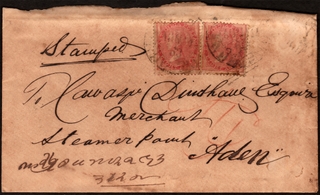 Stamped
To Cawasji Dinshaw Esquire
Merchant
Steamer Point
Aden